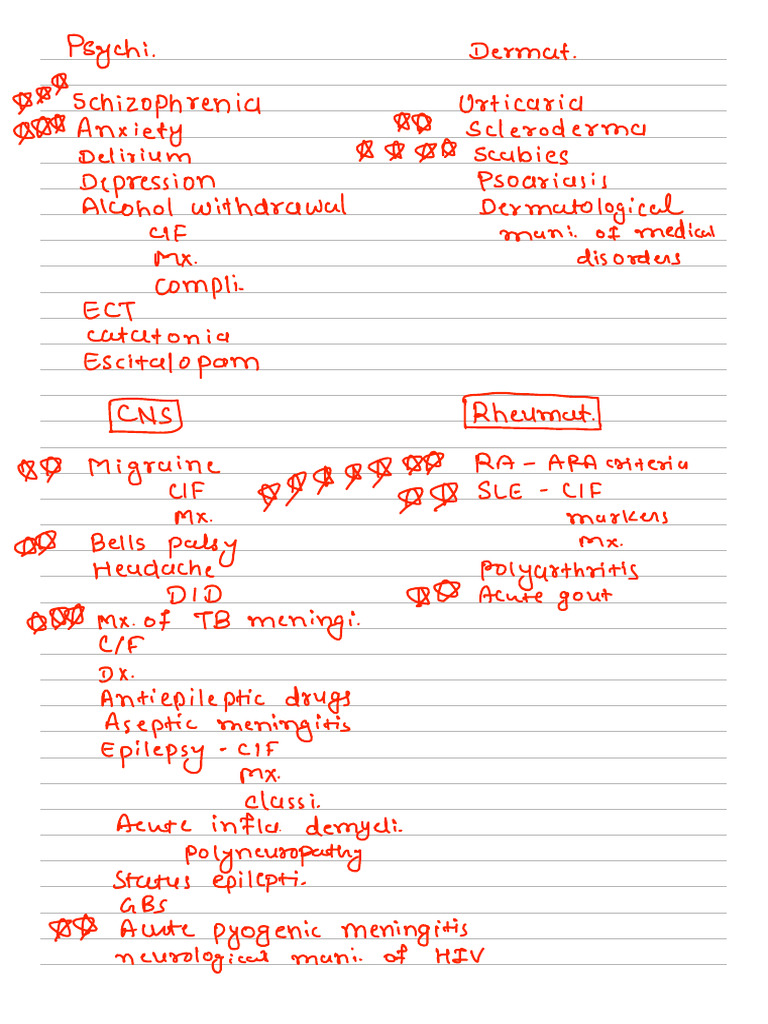 Psychi.
Schizophrenia
Anxiety
Delirium
Depression
Alcohol withdrawal
C/F
Mx.
Compli.
ECT
catatonia
Escitalopam
Dermat.
Urticaria
Scleroderma
Scabies
Psoariasis
Dermatological
mani. of medical
disorders
CNS
Migraine
C/F
Mx.
Bells palsy
Headache
D/D
Mx. of TB meningi.
C/F
Dx.
Antiepileptic drugs
Aseptic meningitis
Epilepsy - C/F
Mx.
classi.
Acute infla. demyeli.
polyneuropathy
Status epilepti.
GBS
Acute pyogenic meningitis
neurological mani. of HIV
Rheumat.
RA - ARA criteria
SLE - C/F
markers
Mx.
polyarthritis
Acute gout